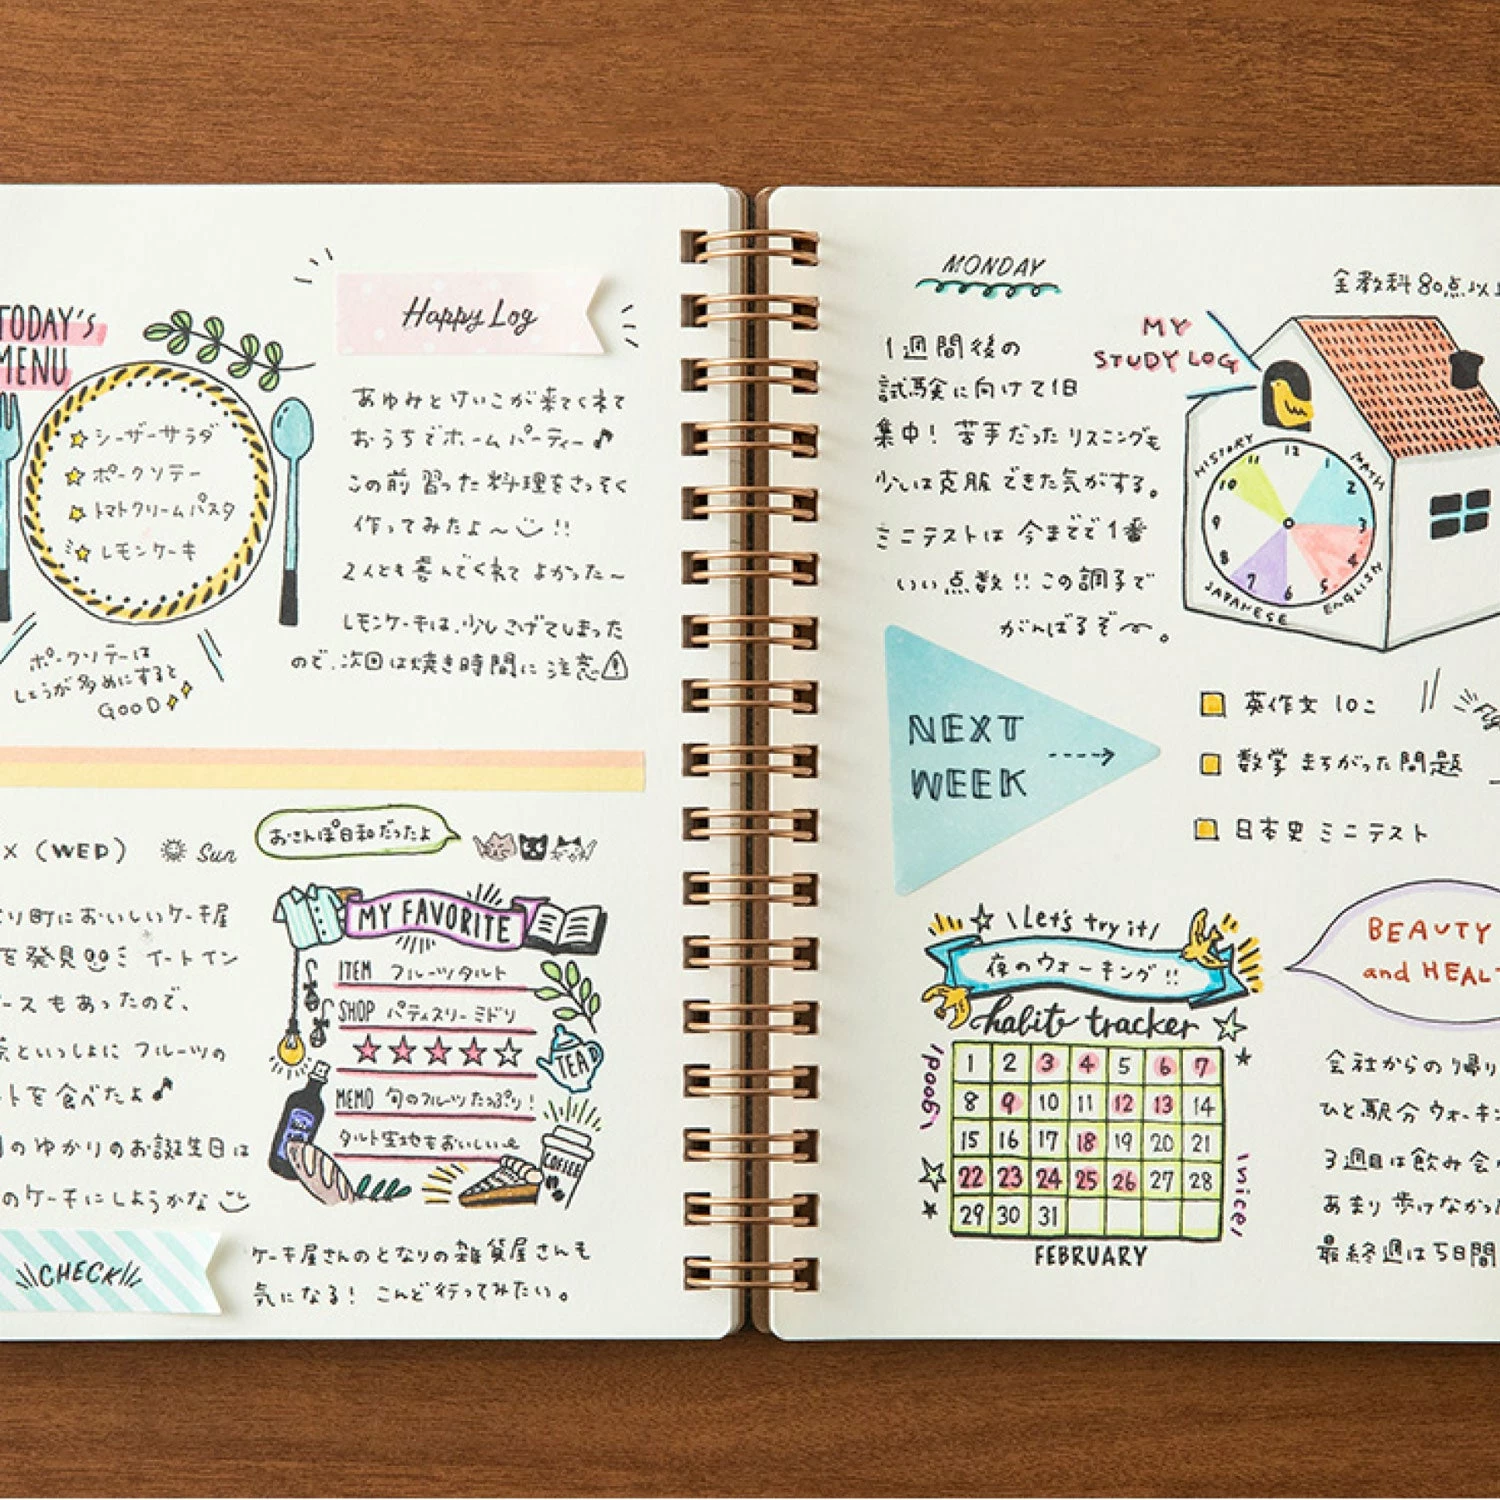 TODAY'S
MENU
シーザーサラダ
ポークソテー
トマトクリームパスタ
レモンケーキ
ポークソテーは
しょうが多めにすると
GOOD
Happy Log
あゆみとけいこが来てくれて
おうちでホームパーティー♪
この前習った料理をさっそく
作ってみたよ〜!!
2人とも喜んでくれてよかった〜
レモンケーキは、少しこげてしまった
ので、次回は焼き時間に注意
(WED) Sun
おさんぽ日和だったよ
町においしいケーキ屋
を発見 イートイン
ースもあったので、
茶といっしょにフルーツの
トを食べたよ♪
のゆかりのお誕生日は
のケーキにしようかな
MY FAVORITE
ITEM フルーツタルト
SHOP パティスリーミドリ
★★★★☆
TEA
MEMO 旬のフルーツたっぷり!
タルト生地もおいしい
COFFEE
CHECK
ケーキ屋さんのとなりの雑貨屋さんも
気になる! こんど行ってみたい。
MONDAY
1週間後の
試験に向けて1日
集中! 苦手だったリスニングも
少しは克服できた気がする。
ミニテストは今までで1番
いい点数!! この調子で
がんばるぞ〜。
全教科80点以上
MY
STUDY LOG
HISTORY
MATH
ENGLISH
JAPANESE
12 1 2 3 4 5 6 7 8 9 10 11
NEXT
WEEK
英作文 10こ
数学 まちがった問題
日本史 ミニテスト
\Let's try it/
夜のウォーキング!!
habit tracker
1 2 3 4 5 6 7
8 9 10 11 12 13 14
15 16 17 18 19 20 21
22 23 24 25 26 27 28
29 30 31
FEBRUARY
good!
nice!
BEAUTY
and HEALT
会社からの帰り
ひと駅分ウォーキン
3週目は飲み会
あまり歩けなかっ
最終週は5日間